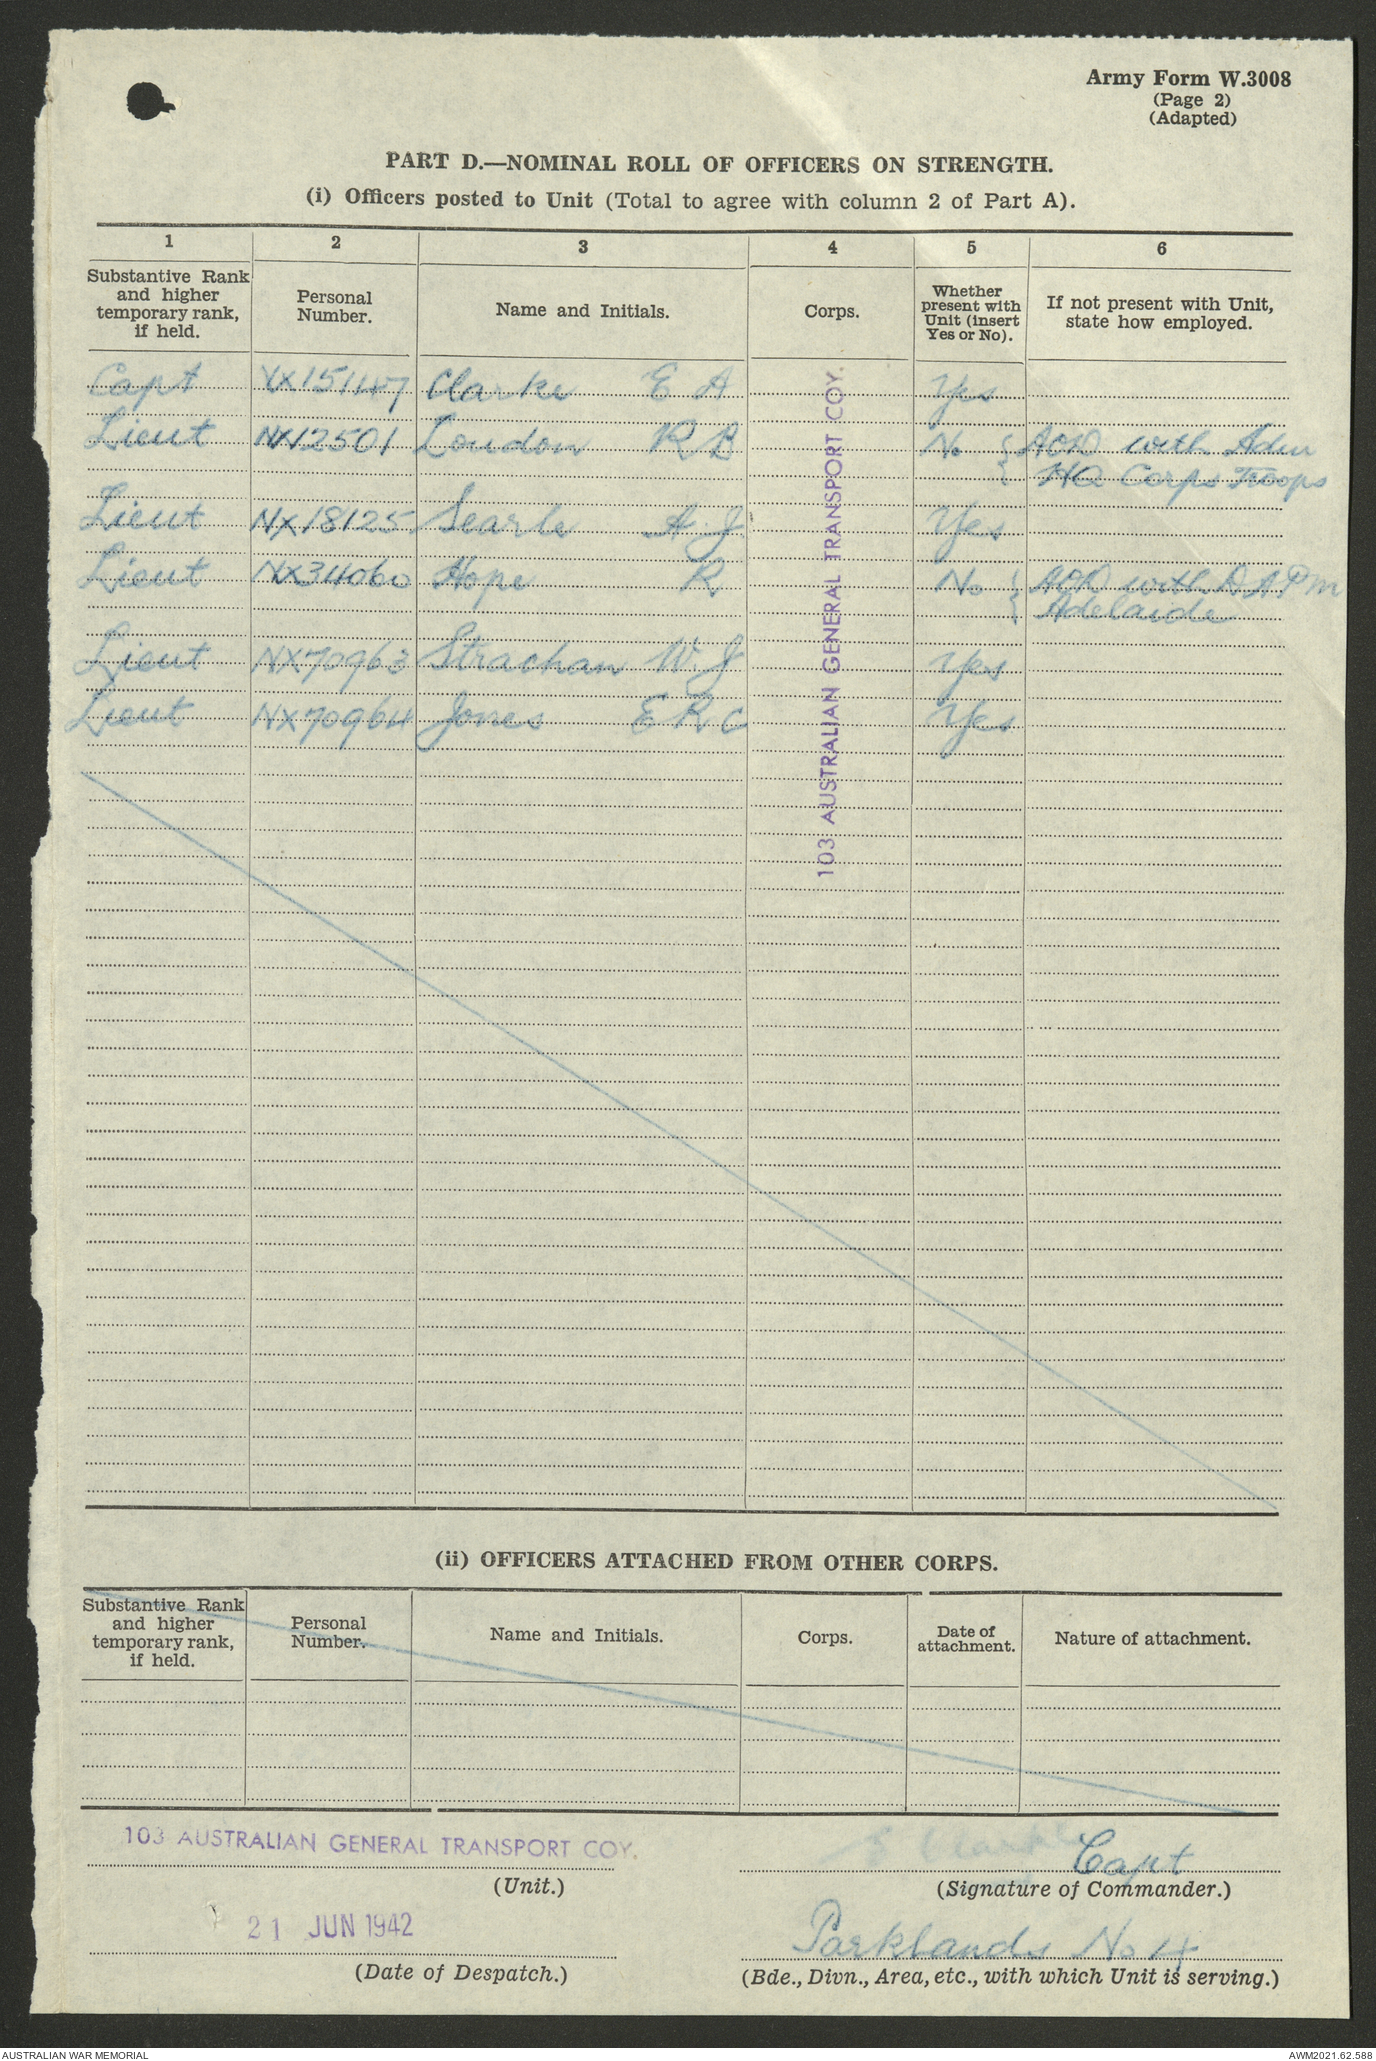 Army Form W.3008
(Page 2)
(Adapted)
PART D.—NOMINAL ROLL OF OFFICERS ON STRENGTH.
(i) Officers posted to Unit (Total to agree with column 2 of Part A).
1 2 3 4 5 6
Substantive Rank and higher temporary rank, if held. Personal Number. Name and Initials. Corps. Whether present with Unit (insert Yes or No). If not present with Unit, state how employed.
Capt VX15147 Clarke E A Yes
Lieut NX12501 Loudon R B No with Adm
HQ Corps Troops
Lieut NX18125 Searle A. J. Yes
Lieut NX34060 Hope R No with D A P M
Adelaide
Lieut NX70963 Strachan W. J Yes
Lieut NX70964 Jones E R C Yes
103 AUSTRALIAN GENERAL TRANSPORT COY.
(ii) OFFICERS ATTACHED FROM OTHER CORPS.
Substantive Rank and higher temporary rank, if held. Personal Number. Name and Initials. Corps. Date of attachment. Nature of attachment.
103 AUSTRALIAN GENERAL TRANSPORT COY.
(Unit.)
E Clarke Capt
(Signature of Commander.)
21 JUN 1942
(Date of Despatch.)
Parklands No 4
(Bde., Divn., Area, etc., with which Unit is serving.)
AUSTRALIAN WAR MEMORIAL
AWM2021.62.588